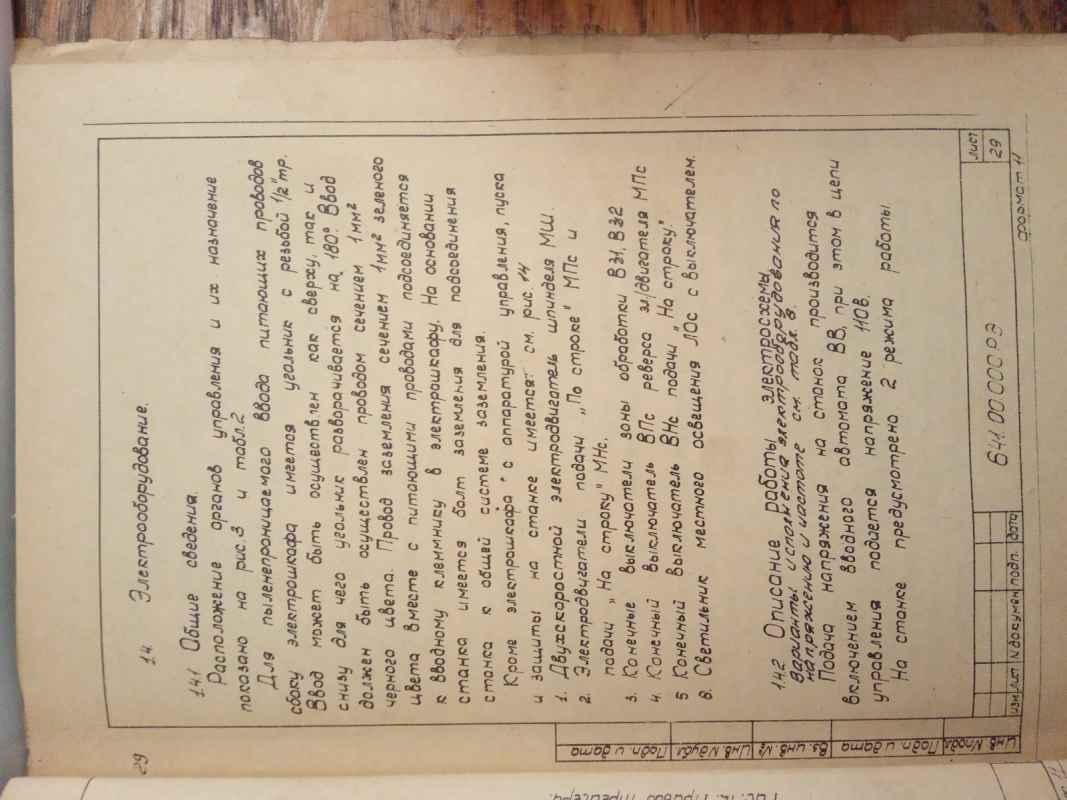 29
14. Электрооборудование.
14.1 Общие сведения.
Расположение органов управления и их назначение
показано на рис.3 и табл.2
Для пыленепроницаемого ввода питающих проводов
сбоку электрошкафа имеется угольник с резьбой 1/2" тр.
Ввод может быть осуществлен как сверху, так и
снизу для чего угольник разворачивается на 180°. Ввод
должен быть осуществлен проводом сечением 1мм²
черного цвета. Провод заземления сечением 1мм² зеленого
цвета вместе с питающими проводами подсоединяется
к вводному клеммнику в электрошкафу. На основании
станка имеется болт заземления для подсоединения
станка к общей системе заземления.
Кроме электрошкафа с аппаратурой управления, пуска
и защиты на станке имеется: см. рис 14
1. Двухскоростной электродвигатель шпинделя МШ.
2. Электродвигатели подачи „По строке" МПс и
подачи „На строку" МНс.
3. Конечные выключатели зоны обработки Вз1, Вз2
4. Конечный выключатель ВПс реверса эл/двигателя МПс
5 Конечный выключатель ВНс подачи „На строку".
6. Светильник местного освещения ЛОс с выключателем.
14.2 Описание работы электросхемы
Варианты исполнения электрооборудования по
напряжению и частоте см. табл. 8.
Подача напряжения на станок производится
включением вводного автомата ВВ, при этом в цепи
управления подается напряжение 110В.
На станке предусмотрено 2 режима работы.
Инв. №подл Подп. и дата Вз. инв. № Инв. №дубл Подп. и дата
изм лит № докумен подп. дата
641.00.000 РЭ
лист
29
формат 11